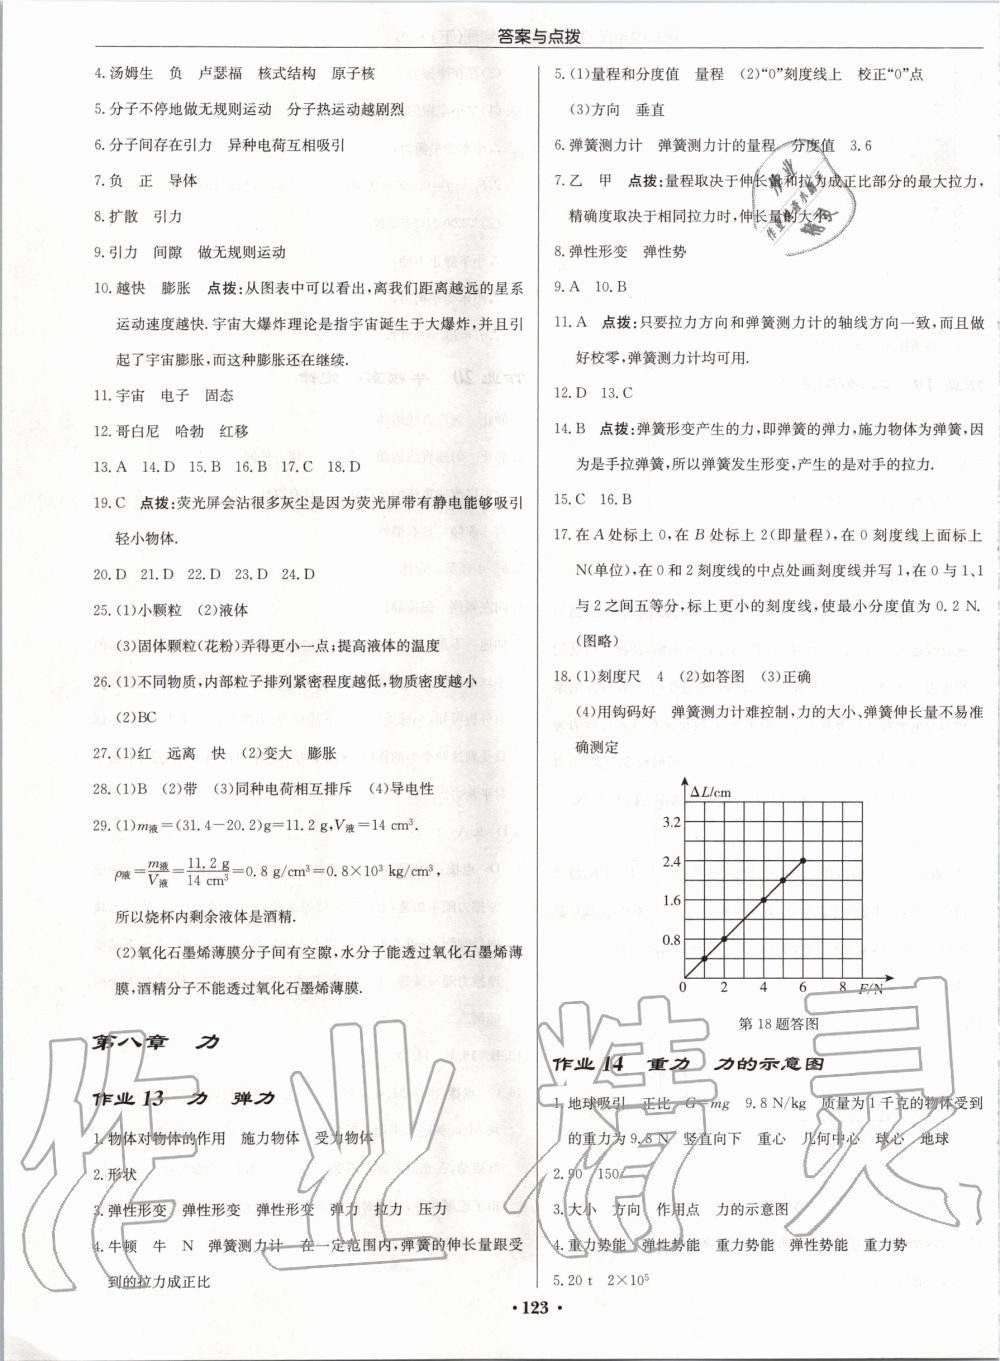 答案与点拨
4.汤姆生　负　卢瑟福　核式结构　原子核
5.分子不停地做无规则运动　分子热运动越剧烈
6.分子间存在引力　异种电荷互相吸引
7.负　正　导体
8.扩散　引力
9.引力　间隙　做无规则运动
10.越快　膨胀　点拨:从图表中可以看出,离我们距离越远的星系
运动速度越快.宇宙大爆炸理论是指宇宙诞生于大爆炸,并且引
起了宇宙膨胀,而这种膨胀还在继续.
11.宇宙　电子　固态
12.哥白尼　哈勃　红移
13.A　14.D　15.B　16.B　17.C　18.D
19.C　点拨:荧光屏会沾很多灰尘是因为荧光屏带有静电能够吸引
轻小物体.
20.D　21.D　22.D　23.D　24.D
25.(1)小颗粒　(2)液体
(3)固体颗粒(花粉)弄得更小一点;提高液体的温度
26.(1)不同物质,内部粒子排列紧密程度越低,物质密度越小
(2)BC
27.(1)红　远离　快　(2)变大　膨胀
28.(1)B　(2)带　(3)同种电荷相互排斥　(4)导电性
29.(1)m液=(31.4-20.2)g=11.2 g,V液=14 cm³.
ρ液=m液/V液=11.2 g/14 cm³=0.8 g/cm³=0.8×10³ kg/cm³,
所以烧杯内剩余液体是酒精.
(2)氧化石墨烯薄膜分子间有空隙,水分子能透过氧化石墨烯薄
膜,酒精分子不能透过氧化石墨烯薄膜.
第八章　力
作业13　力　弹力
1.物体对物体的作用　施力物体　受力物体
2.形状
3.弹性形变　弹性形变　弹性形变　弹力　拉力　压力
4.牛顿　牛　N　弹簧测力计　在一定范围内,弹簧的伸长量跟受
到的拉力成正比
5.(1)量程和分度值　量程　(2)“0”刻度线上　校正“0”点
(3)方向　垂直
6.弹簧测力计　弹簧测力计的量程　分度值　3.6
7.乙　甲　点拨:量程取决于伸长量和拉力成正比部分的最大拉力,
精确度取决于相同拉力时,伸长量的大小.
8.弹性形变　弹性势
9.A　10.B
11.A　点拨:只要拉力方向和弹簧测力计的轴线方向一致,而且做
好校零,弹簧测力计均可用.
12.D　13.C
14.B　点拨:弹簧形变产生的力,即弹簧的弹力,施力物体为弹簧,因
为是手拉弹簧,所以弹簧发生形变,产生的是对手的拉力.
15.C　16.B
17.在A处标上0,在B处标上2(即量程),在0刻度线上面标上
N(单位),在0和2刻度线的中点处画刻度线并写1,在0与1、1
与2之间五等分,标上更小的刻度线,使最小分度值为0.2 N.
(图略)
18.(1)刻度尺　4　(2)如答图　(3)正确
(4)用钩码好　弹簧测力计难控制,力的大小、弹簧伸长量不易准
确测定
ΔL/cm
3.2
2.4
1.6
0.8
0　2　4　6　8　F/N
第18题答图
作业14　重力　力的示意图
1.地球吸引　正比　G=mg　9.8 N/kg　质量为1千克的物体受到
的重力为9.8 N　竖直向下　重心　几何中心　球心　地球
2.90　150
3.大小　方向　作用点　力的示意图
4.重力势能　弹性势能　重力势能　弹性势能　重力势
5.20 t　2×10⁵
· 123 ·
作业精灵